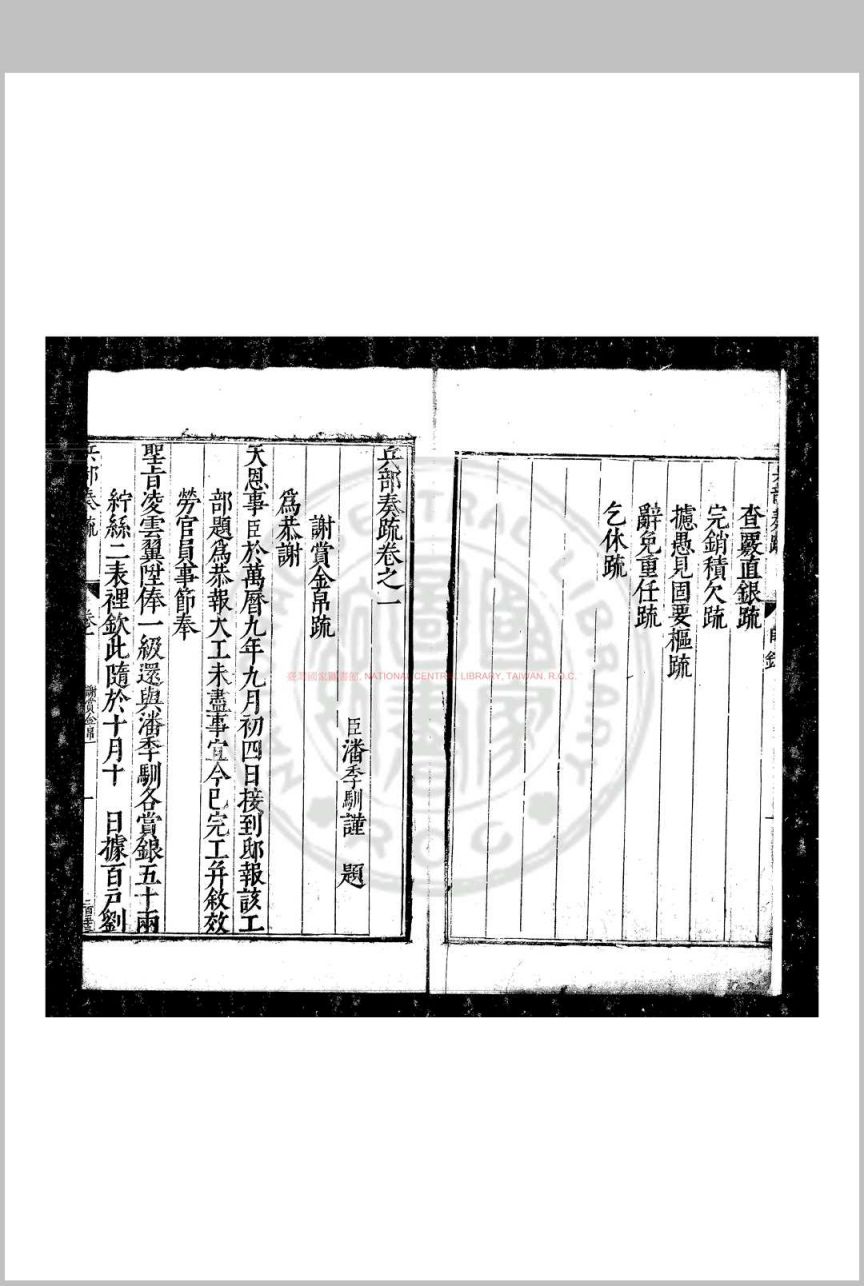 查覈直銀疏
完銷積欠疏
攄愚見固要樞疏
辭免重任疏
乞休疏
兵部奏疏卷之一
臣潘季馴謹 題
謝賞金帛疏
為恭謝
天恩事臣於萬曆九年九月初四日接到邸報該工
部題為恭報大工未盡事宜今已完工并敘效
勞官員事節奉
聖旨凌雲翼陞俸一級還與潘季馴各賞銀五十兩
紵絲二表裡欽此隨於十月十 日據百戶劉
兵部奏疏 卷一 謝賞金帛 一
臺灣國家圖書館, NATIONAL CENTRAL LIBRARY, TAIWAN, R.O.C.
NATIONAL CENTRAL LIBRARY R.O.C.
國家圖書館